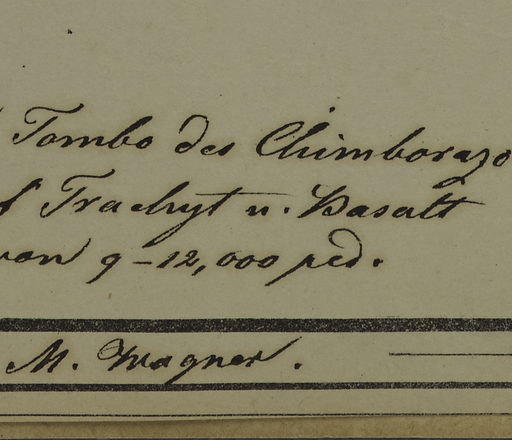 Tombo des Chimborazo
f Trachyt u. Basalt
von 9-12,000 ped.
M. Wagner.